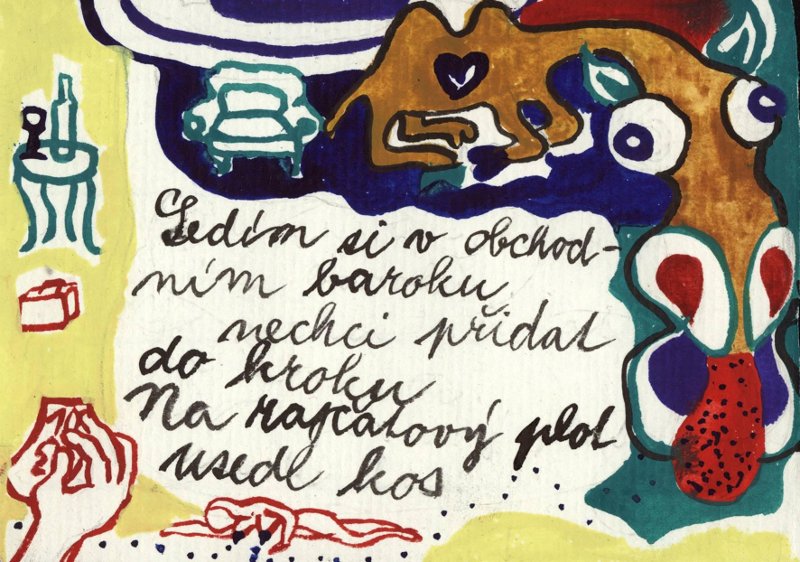 Sedím si v obchod-
ním baroku
nechci přidat
do kroku
Na rajčatový plot
usedl kos